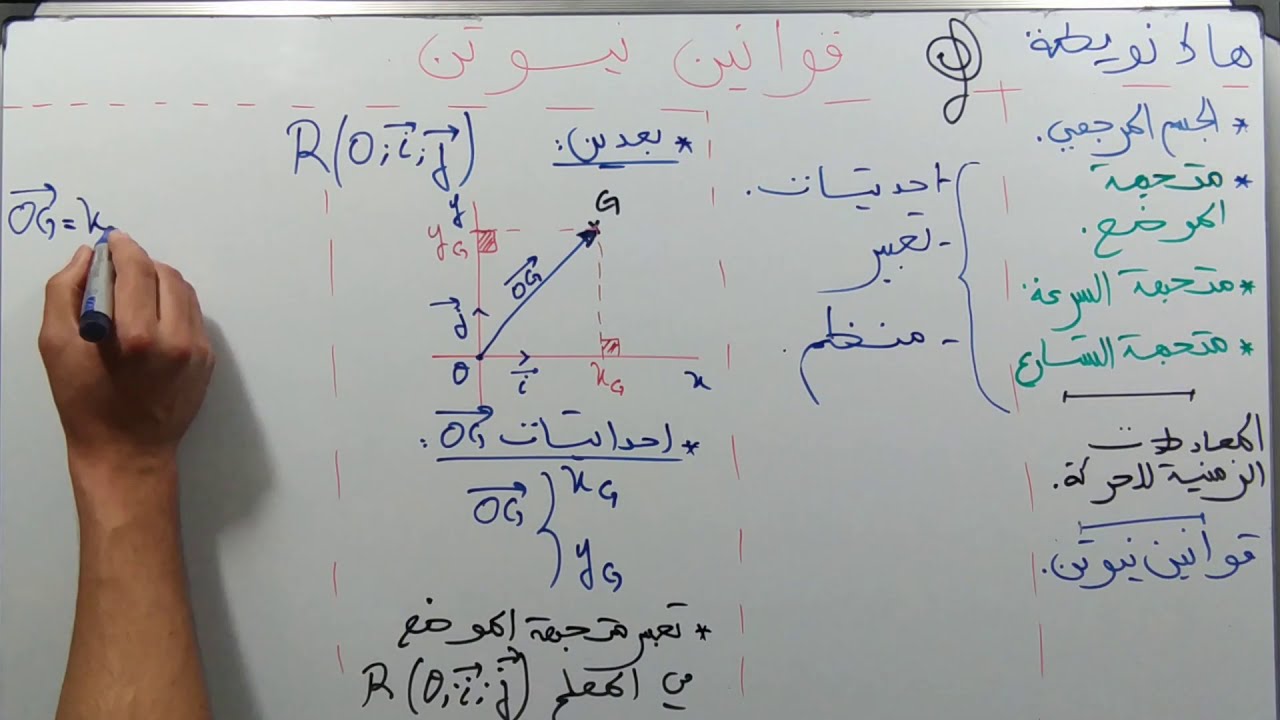 قوانين نيوتن
* الجسم المرجعي.
* متجهة
الموضع.
* متجهة السرعة
* متجهة التسارع
المعادلات
الزمنية للحركة.
قوانين نيوتن.
- احداثيات.
- تعبير
- منظم.
* بعدين: R(O;i→;j→)
G
y
y_G
OG→
j→
O
i→
x_G
x
* احداثيات OG→:
OG→ { x_G
y_G
* تعبير متجهة الموضع
في المعلم R(O;i→;j→)
OG→ = x